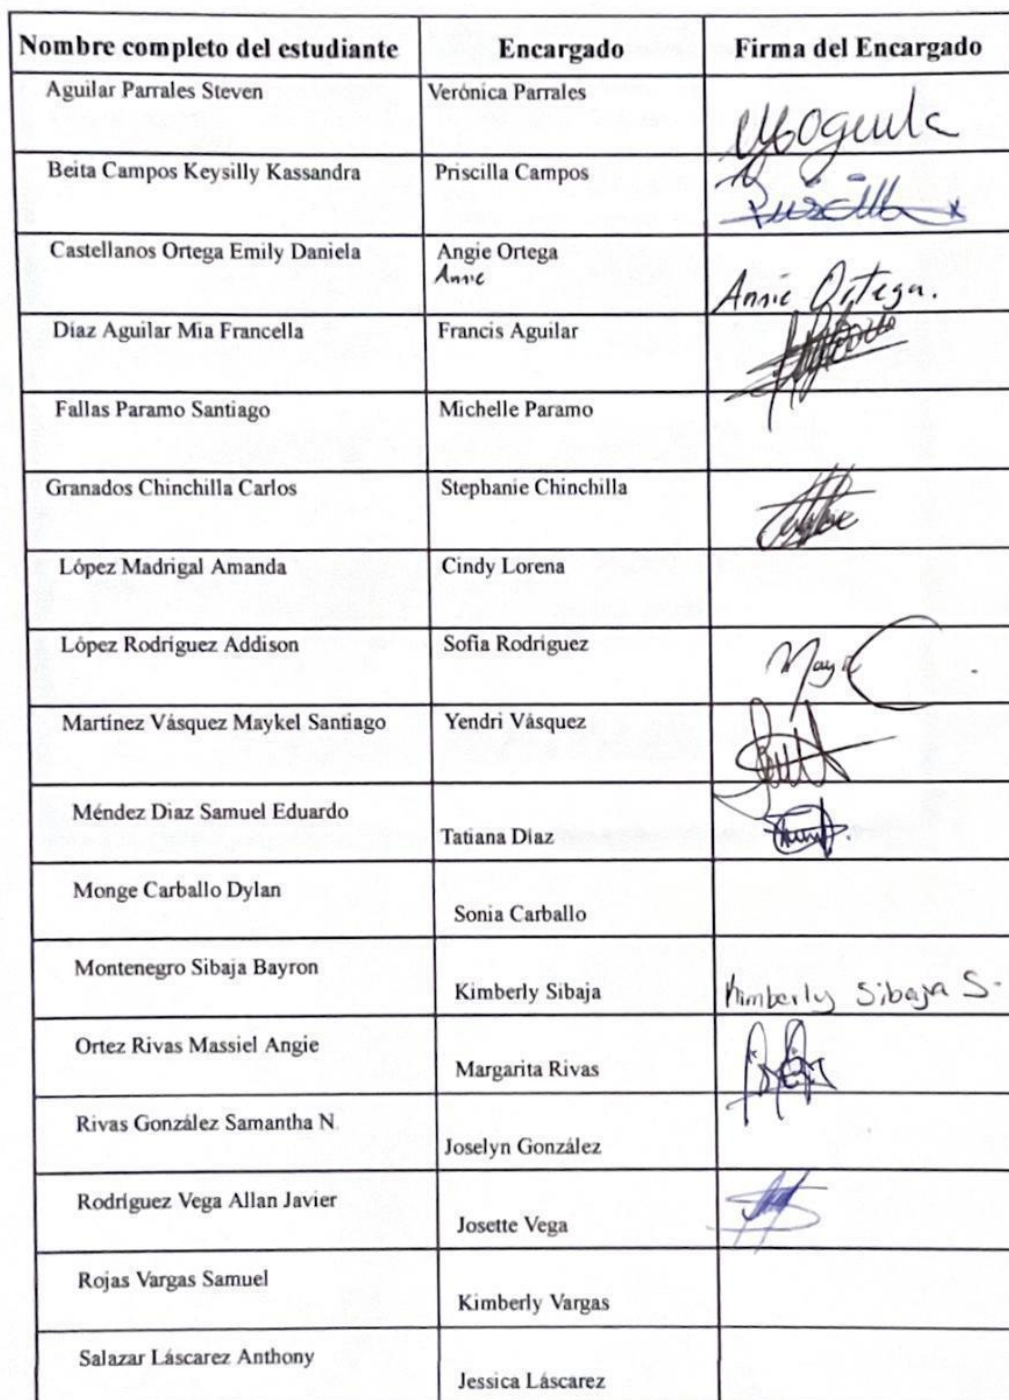 Nombre completo del estudiante Encargado Firma del Encargado
Aguilar Parrales Steven Verónica Parrales
Beita Campos Keysilly Kassandra Priscilla Campos
Priscilla
Castellanos Ortega Emily Daniela Angie Ortega
Annie
Annie Ortega.
Díaz Aguilar Mia Francella Francis Aguilar
Fallas Paramo Santiago Michelle Paramo
Granados Chinchilla Carlos Stephanie Chinchilla
López Madrigal Amanda Cindy Lorena
López Rodríguez Addison Sofía Rodríguez
Martínez Vásquez Maykel Santiago Yendri Vásquez
Méndez Diaz Samuel Eduardo
Tatiana Díaz
Monge Carballo Dylan
Sonia Carballo
Montenegro Sibaja Bayron
Kimberly Sibaja Kimberly Sibaja S.
Ortez Rivas Massiel Angie
Margarita Rivas
Rivas González Samantha N.
Joselyn González
Rodríguez Vega Allan Javier
Josette Vega
Rojas Vargas Samuel
Kimberly Vargas
Salazar Láscarez Anthony
Jessica Láscarez